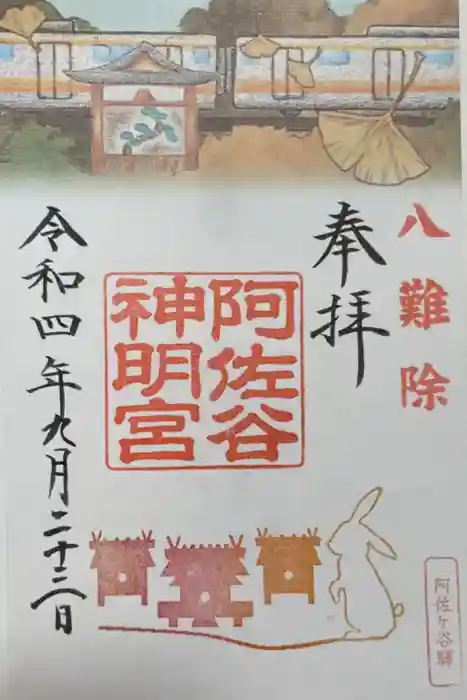 八難除
奉拝
阿佐谷
神明宮
令和四年九月二十二日
阿佐ケ谷驛